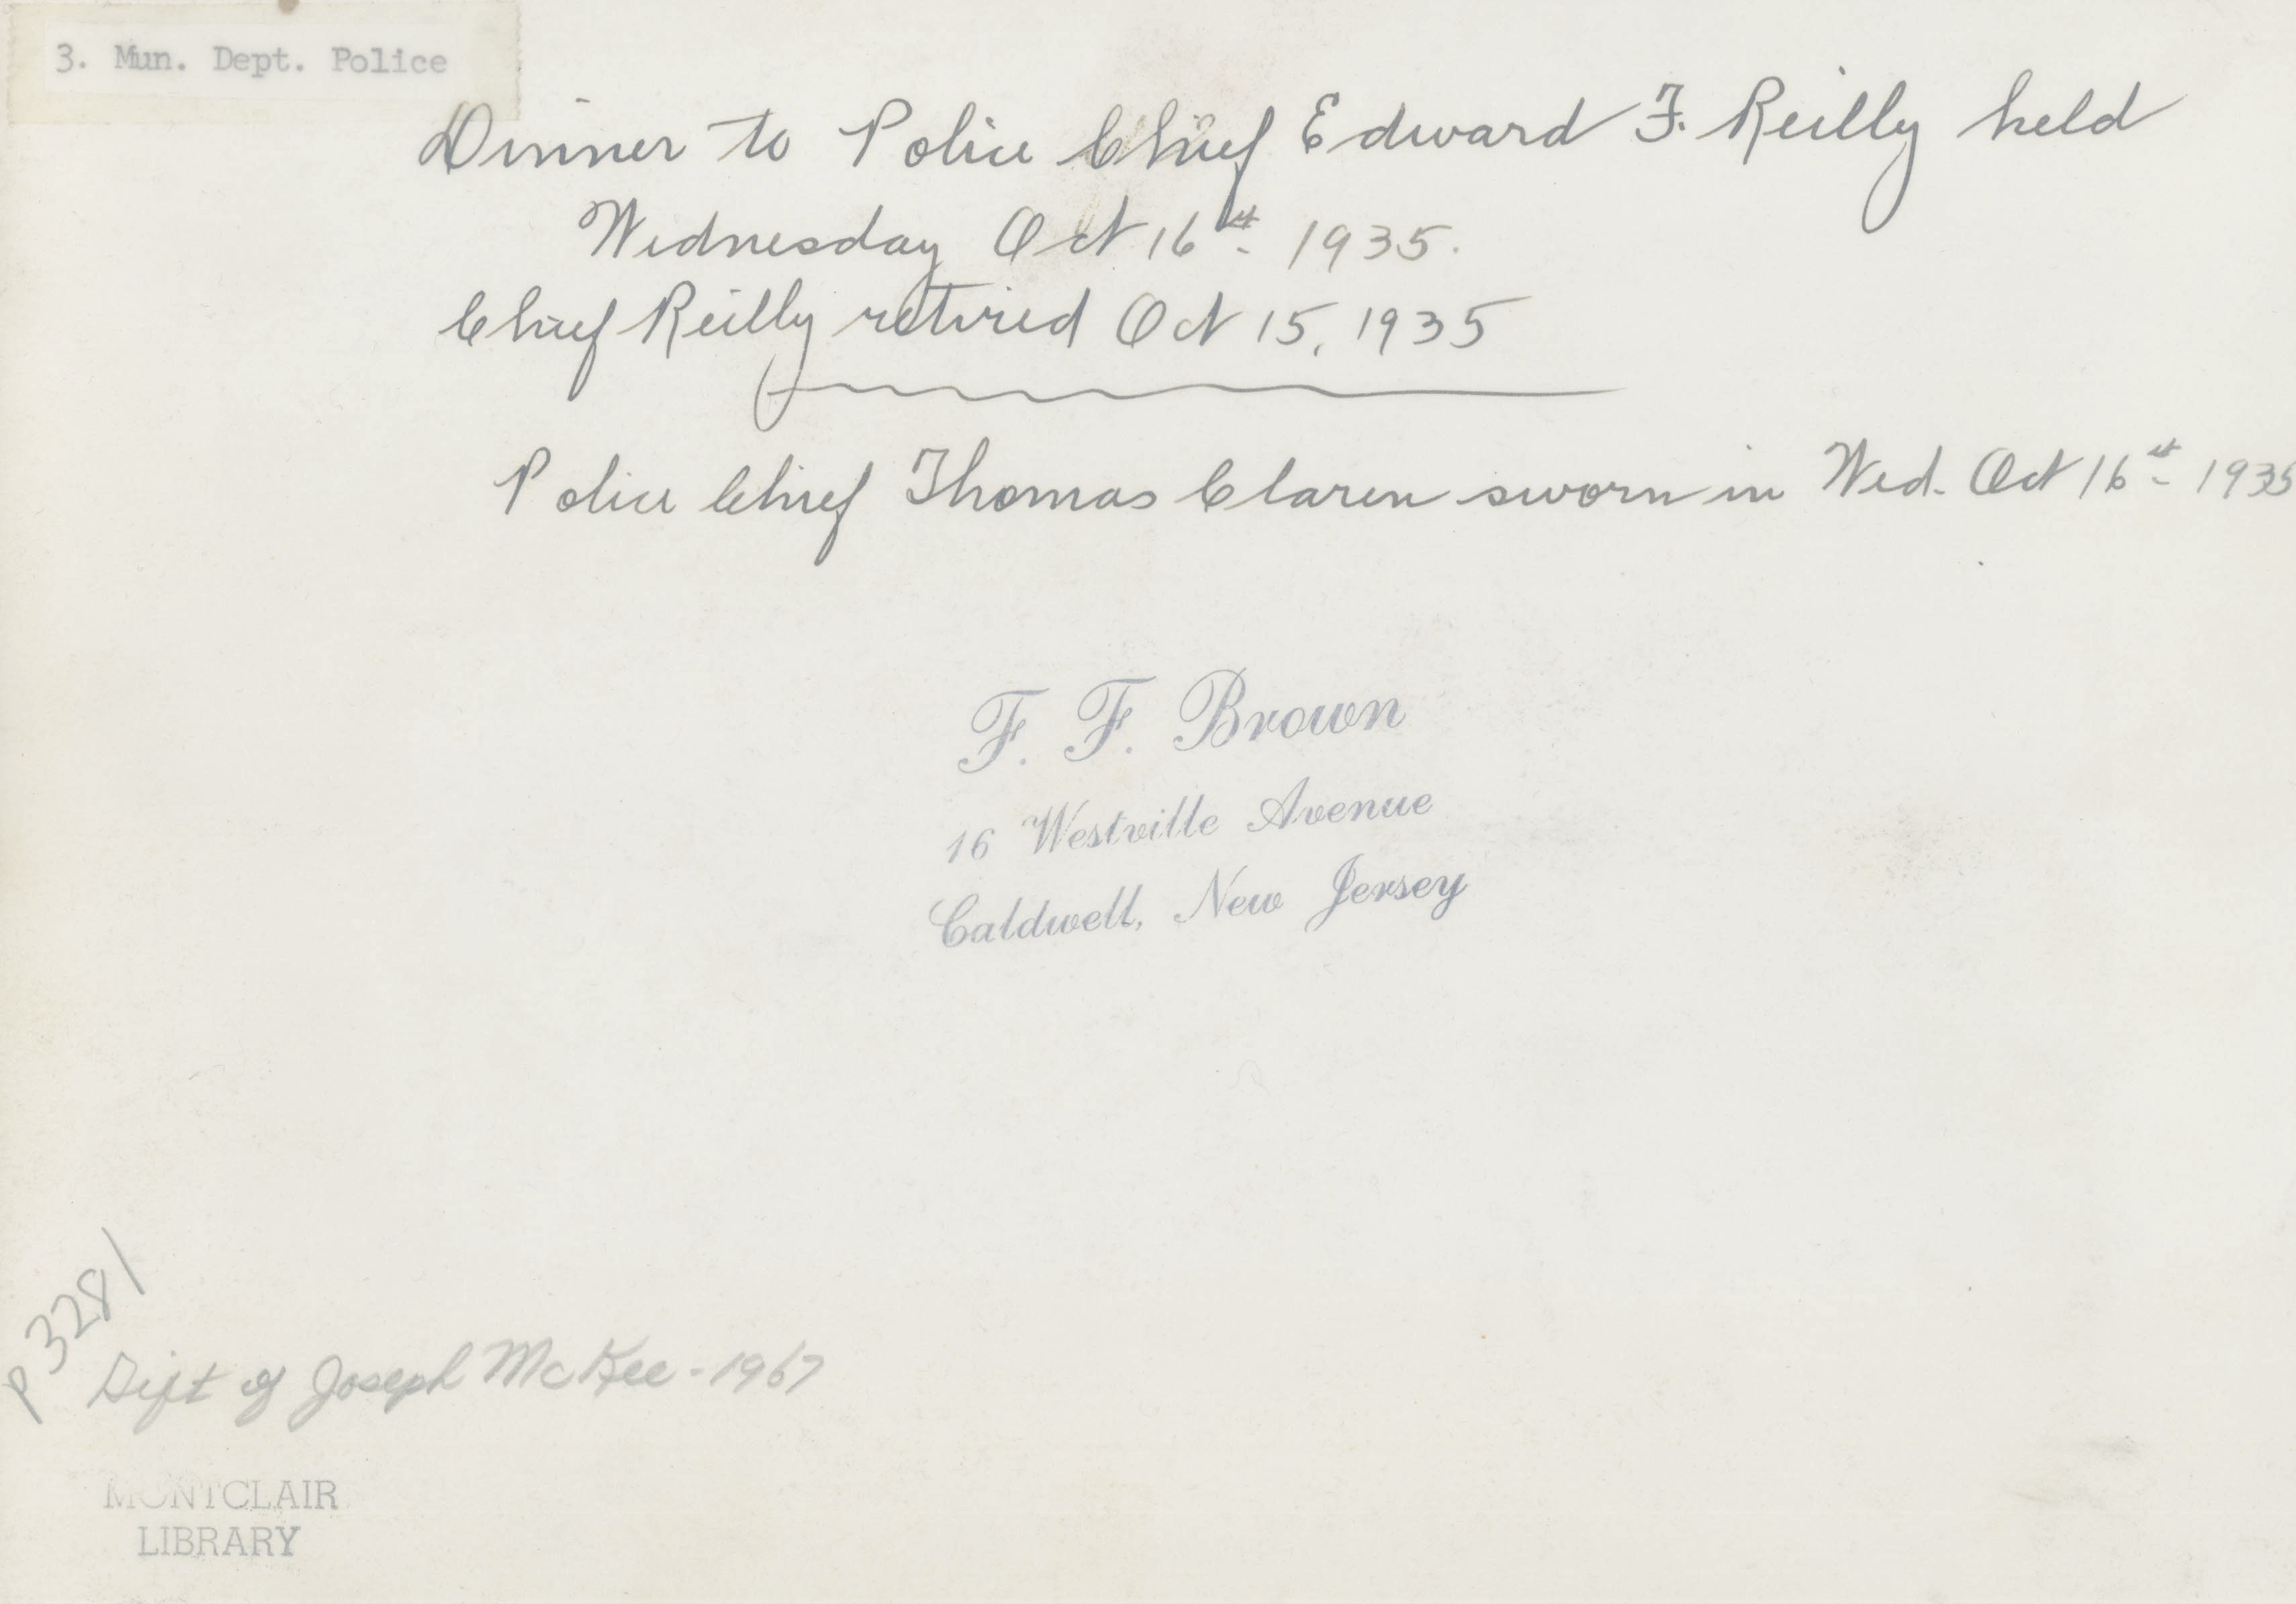 3. Mun. Dept. Police
Dinner to Police Chief Edward F. Reilly held
Wednesday Oct 16th 1935.
Chief Reilly retired Oct 15, 1935
Police Chief Thomas Claren sworn in Wed. Oct 16th 1935
F. F. Brown
16 Westville Avenue
Caldwell, New Jersey
P 3281
Gift of Joseph McKee - 1967
MONTCLAIR
LIBRARY